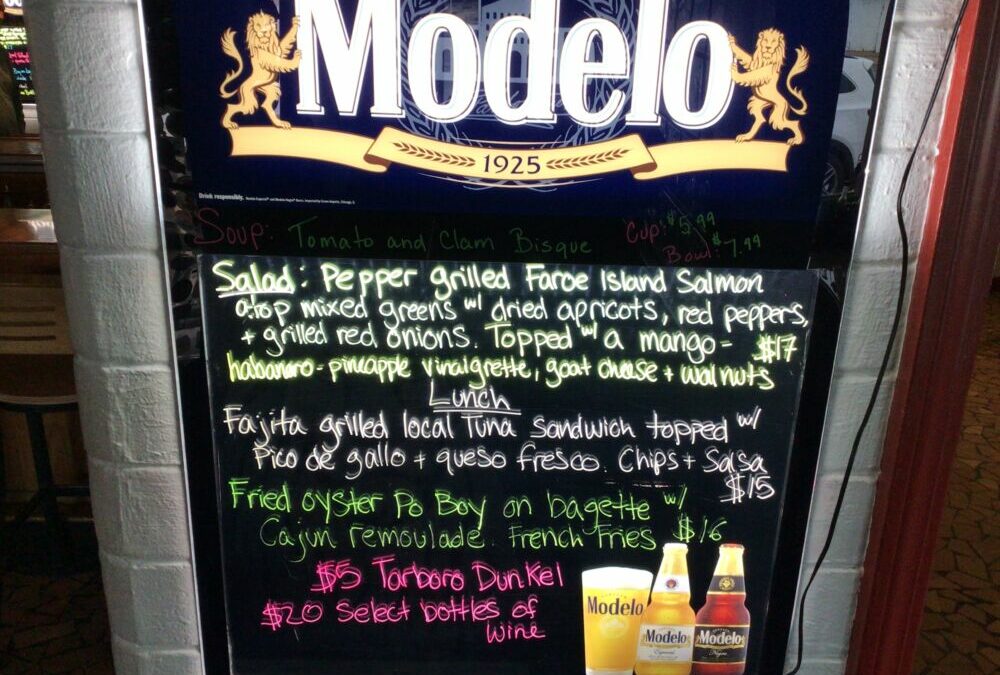 Modelo
1925
Drink responsibly.
Soup: Tomato and Clam Bisque Cup: $5.99
Bowl: $7.99
Salad: Pepper grilled Faroe Island Salmon
atop mixed greens w/ dried apricots, red peppers,
+ grilled red onions. Topped w/ a mango- $17
habanero-pineapple vinaigrette, goat cheese + walnuts
Lunch
Fajita grilled local Tuna Sandwich topped w/
Pico de gallo + queso fresco. Chips + Salsa
$15
Fried oyster Po Boy on bagette w/
Cajun remoulade. French Fries $16
$5 Tarboro Dunkel
$20 Select bottles of
wine
Modelo
Modelo
Especial
Modelo
Negra